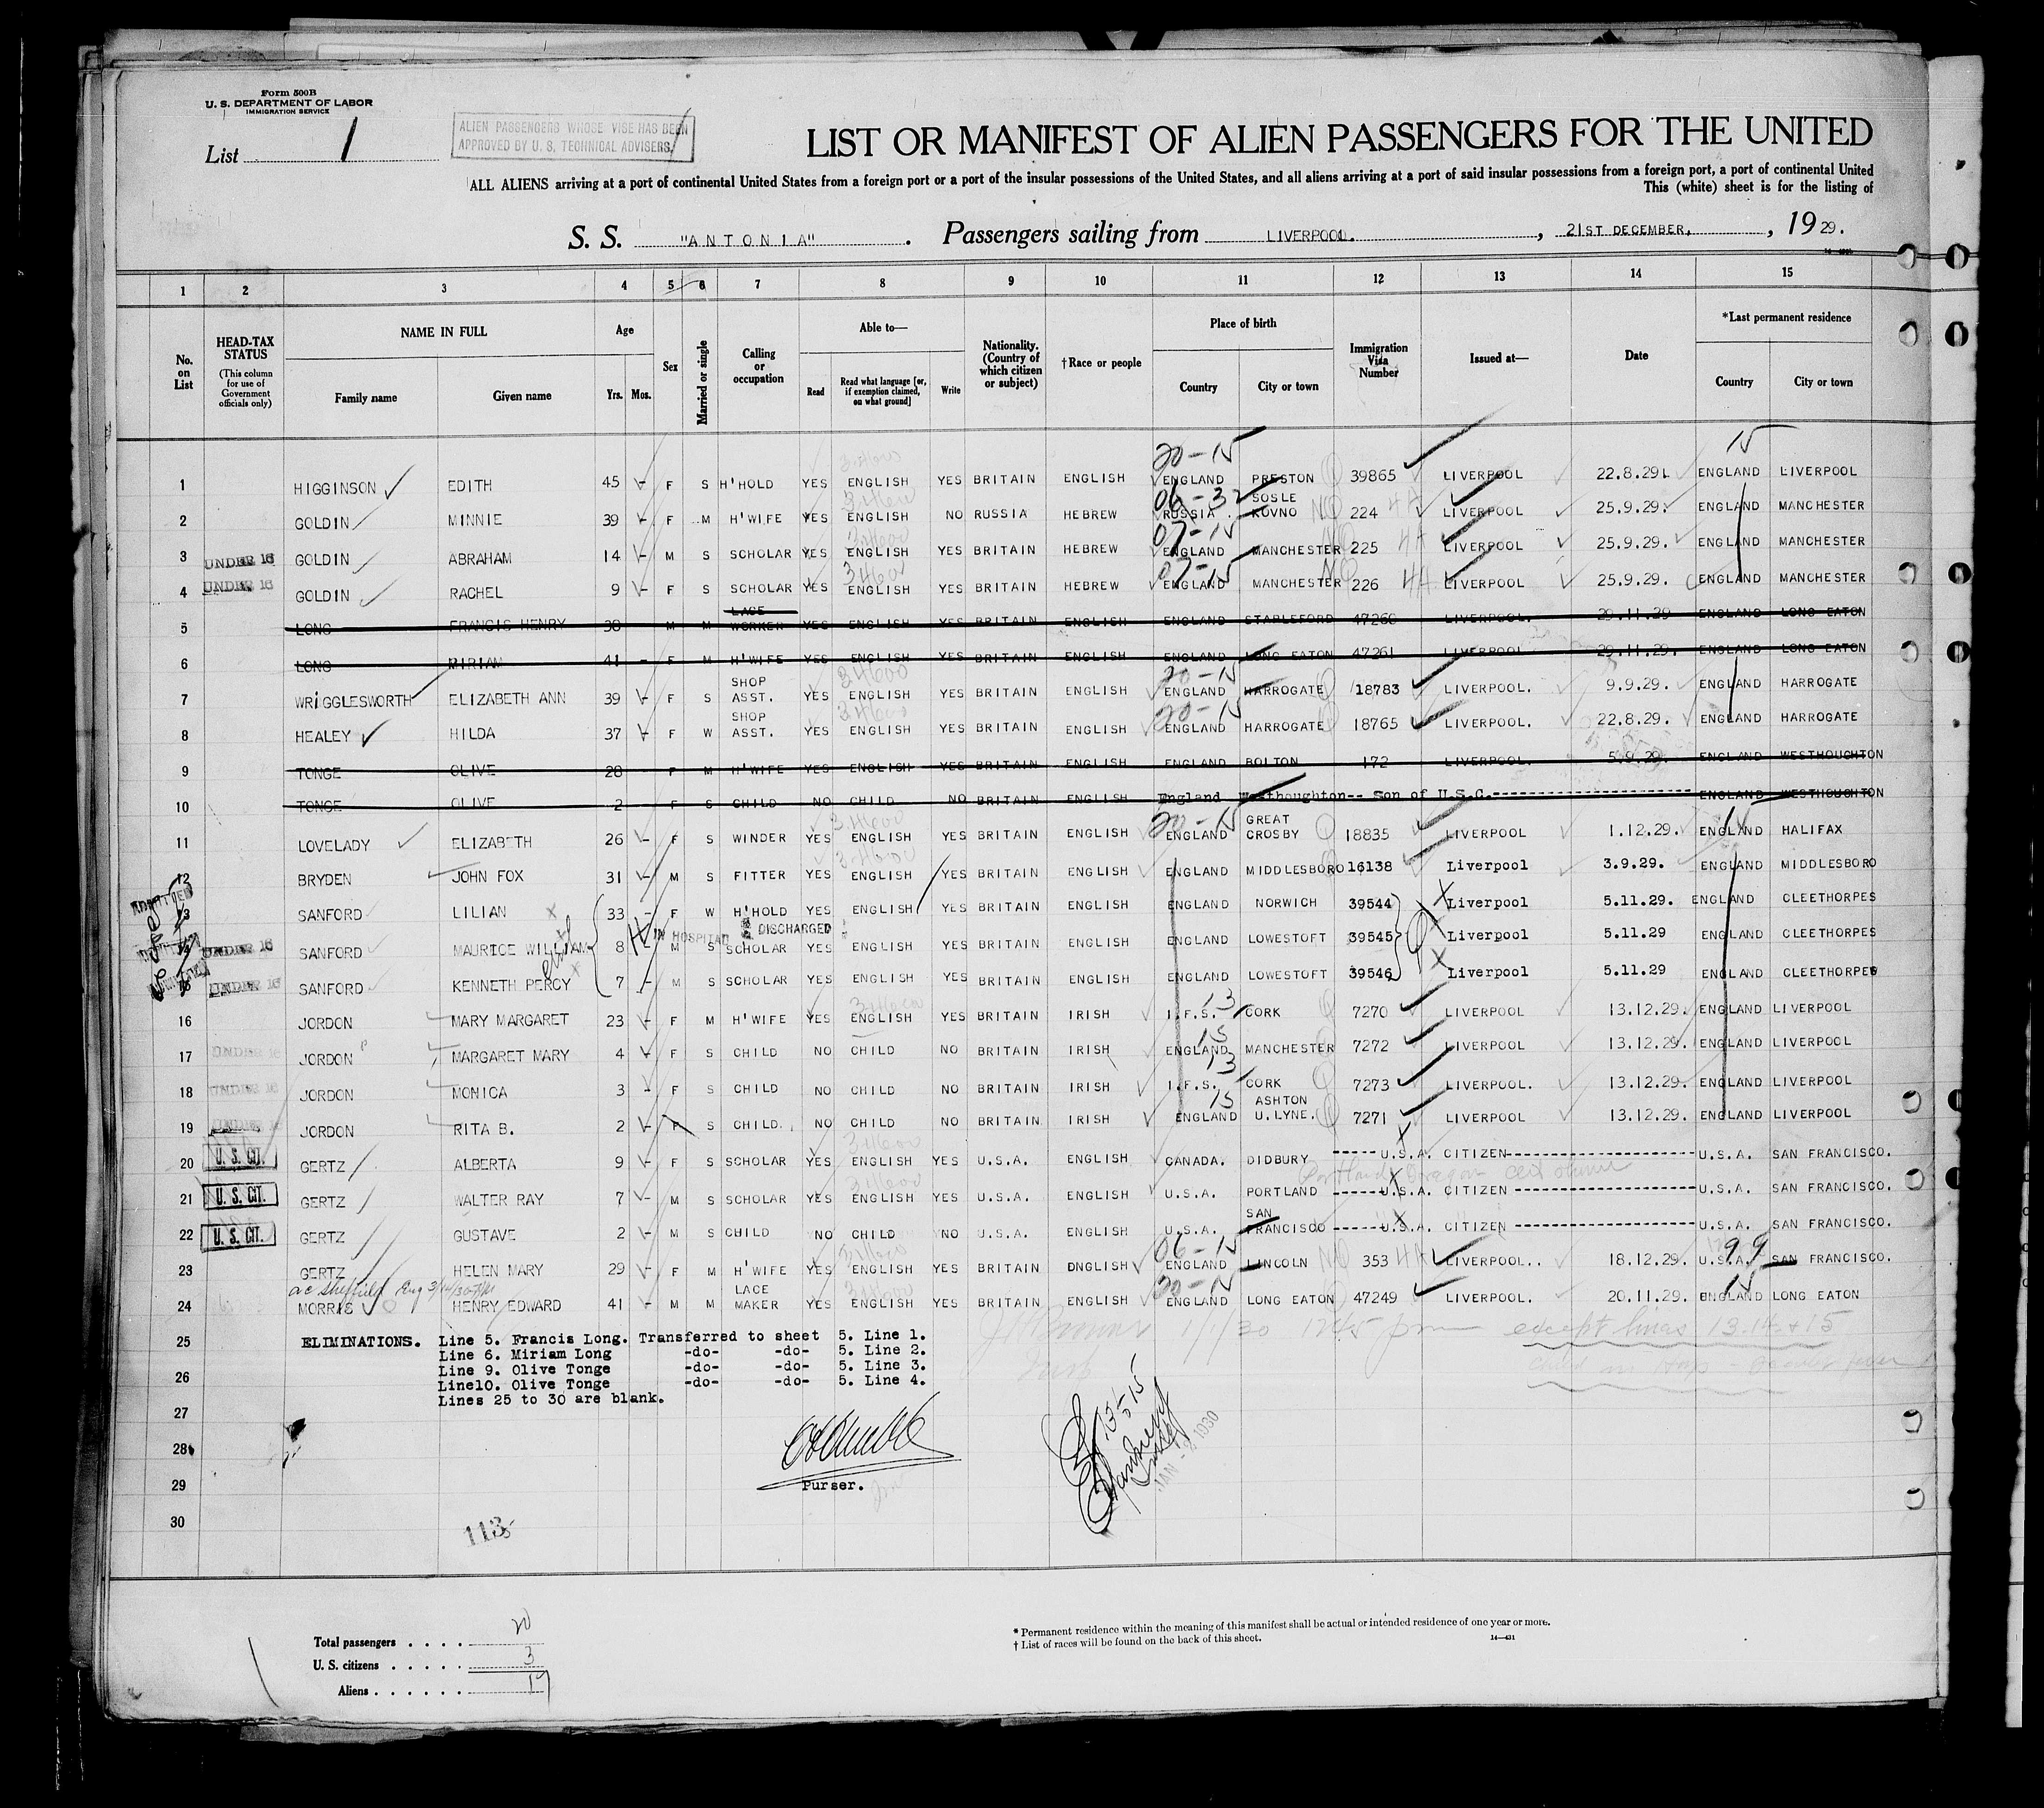 Form 500B
U. S. DEPARTMENT OF LABOR
IMMIGRATION SERVICE
List 1
ALIEN PASSENGERS WHOSE VISE HAS BEEN
APPROVED BY U. S. TECHNICAL ADVISERS.
LIST OR MANIFEST OF ALIEN PASSENGERS FOR THE UNITED
ALL ALIENS arriving at a port of continental United States from a foreign port or a port of the insular possessions of the United States, and all aliens arriving at a port of said insular possessions from a foreign port, a port of continental United
This (white) sheet is for the listing of
S. S. "ANTONIA" . Passengers sailing from LIVERPOOL. , 21ST DECEMBER, , 19 29.
1 2 3 4 5 6 7 8 9 10 11 12 13 14 15
No. on List
HEAD-TAX STATUS
(This column for use of Government officials only)
NAME IN FULL
Family name
Given name
Age
Yrs.
Mos.
Sex
Married or single
Calling or occupation
Able to—
Read
Read what language [or, if exemption claimed, on what ground]
Write
Nationality. (Country of which citizen or subject)
†Race or people
Place of birth
Country
City or town
Immigration Visa Number
Issued at—
Date
*Last permanent residence
Country
City or town
20-15 15
1 HIGGINSON EDITH 45 - F S H'HOLD YES ENGLISH YES BRITAIN ENGLISH ENGLAND PRESTON 39865 LIVERPOOL 22.8.29. ENGLAND LIVERPOOL
06-32
2 GOLDIN MINNIE 39 - F M H'WIFE YES ENGLISH NO RUSSIA HEBREW RUSSIA SOSLE KOVNO NQ 224 4A LIVERPOOL 25.9.29. ENGLAND MANCHESTER
07-15
3 UNDER 16 GOLDIN ABRAHAM 14 - M S SCHOLAR YES ENGLISH YES BRITAIN HEBREW ENGLAND MANCHESTER 225 4A LIVERPOOL 25.9.29. ENGLAND MANCHESTER
07-15
4 UNDER 16 GOLDIN RACHEL 9 - F S SCHOLAR YES ENGLISH YES BRITAIN HEBREW ENGLAND MANCHESTER 226 4A LIVERPOOL 25.9.29. ENGLAND MANCHESTER
5 LONG FRANCIS HENRY 38 M M LACE WORKER YES ENGLISH YES BRITAIN ENGLISH ENGLAND STAPLEFORD 47260 LIVERPOOL. 29.11.29 ENGLAND LONG EATON
6 LONG MIRIAM 41 - F M H'WIFE YES ENGLISH YES BRITAIN ENGLISH ENGLAND LONG EATON 47261 LIVERPOOL 29.11.29. ENGLAND LONG EATON
20-15
7 WRIGGLESWORTH ELIZABETH ANN 39 - F S SHOP ASST. YES ENGLISH YES BRITAIN ENGLISH ENGLAND HARROGATE 18783 LIVERPOOL. 9.9.29. ENGLAND HARROGATE
20-15
8 HEALEY HILDA 37 - F W SHOP ASST. YES ENGLISH YES BRITAIN ENGLISH ENGLAND HARROGATE 18765 LIVERPOOL. 22.8.29. ENGLAND HARROGATE
9 TONGE OLIVE 28 F M H'WIFE YES ENGLISH YES BRITAIN ENGLISH ENGLAND BOLTON 172 LIVERPOOL. 5.9.29. ENGLAND WESTHOUGHTON
10 TONGE OLIVE 2 F S CHILD NO CHILD NO BRITAIN ENGLISH England Westhoughton-- Son of U.S.C.---- ENGLAND WESTHOUGHTON
20-15 15
11 LOVELADY ELIZABETH 26 - F S WINDER YES ENGLISH YES BRITAIN ENGLISH ENGLAND GREAT CROSBY 18835 LIVERPOOL 1.12.29. ENGLAND HALIFAX
12 BRYDEN JOHN FOX 31 - M S FITTER YES ENGLISH YES BRITAIN ENGLISH ENGLAND MIDDLESBORO 16138 Liverpool 3.9.29. ENGLAND MIDDLESBORO
ADMITTED
13 SANFORD LILIAN 33 - F W H'HOLD YES ENGLISH YES BRITAIN ENGLISH ENGLAND NORWICH 39544 Liverpool 5.11.29. ENGLAND CLEETHORPES
IN HOSPITAL DISCHARGED
14 UNDER 16 SANFORD MAURICE WILLIAM 8 - M S SCHOLAR YES ENGLISH YES BRITAIN ENGLISH ENGLAND LOWESTOFT 39545 Liverpool 5.11.29 ENGLAND CLEETHORPES
15 UNDER 16 SANFORD KENNETH PERCY 7 - M S SCHOLAR YES ENGLISH YES BRITAIN ENGLISH ENGLAND LOWESTOFT 39546 Liverpool 5.11.29 ENGLAND CLEETHORPES
13
16 JORDON MARY MARGARET 23 - F M H'WIFE YES ENGLISH YES BRITAIN IRISH I.F.S. CORK 7270 LIVERPOOL 13.12.29. ENGLAND LIVERPOOL
15
17 UNDER 16 JORDON MARGARET MARY 4 - F S CHILD NO CHILD NO BRITAIN IRISH ENGLAND MANCHESTER 7272 LIVERPOOL 13.12.29. ENGLAND LIVERPOOL
13
18 UNDER 16 JORDON MONICA 3 - F S CHILD NO CHILD NO BRITAIN IRISH I.F.S. CORK 7273 LIVERPOOL. 13.12.29. ENGLAND LIVERPOOL
15
19 UNDER 16 JORDON RITA B. 2 - F S CHILD. NO CHILD NO BRITAIN IRISH ENGLAND ASHTON U.LYNE. 7271 LIVERPOOL 13.12.29. ENGLAND LIVERPOOL
20 U. S. CIT. GERTZ ALBERTA 9 - F S SCHOLAR YES ENGLISH YES U.S.A. ENGLISH CANADA. DIDBURY -----U.S.A. CITIZEN---- U.S.A. SAN FRANCISCO.
21 U. S. CIT. GERTZ WALTER RAY 7 - M S SCHOLAR YES ENGLISH YES U.S.A. ENGLISH U.S.A. PORTLAND -----U.S.A. CITIZEN---- U.S.A. SAN FRANCISCO.
22 U. S. CIT. GERTZ GUSTAVE 2 - M S CHILD NO CHILD NO U.S.A. ENGLISH U.S.A. SAN FRANCISCO -----U.S.A. CITIZEN---- U.S.A. SAN FRANCISCO.
06-15 99
23 GERTZ HELEN MARY 29 - F M H'WIFE YES ENGLISH YES BRITAIN DNGLISH ENGLAND LINCOLN NQ 353 4A LIVERPOOL.. 18.12.29. U.S.A. SAN FRANCISCO.
20-15 15
24 MORRIS HENRY EDWARD 41 - M M LACE MAKER YES ENGLISH YES BRITAIN ENGLISH ENGLAND LONG EATON 47249 LIVERPOOL. 20.11.29. ENGLAND LONG EATON
1/1/30 1245 pm except lines 13.14 & 15
25 ELIMINATIONS. Line 5. Francis Long. Transferred to sheet 5. Line 1.
Line 6. Miriam Long -do- -do- 5. Line 2.
26 Line 9. Olive Tonge -do- -do- 5. Line 3.
Line10. Olive Tonge -do- -do- 5. Line 4.
Lines 25 to 30 are blank.
27
28
29 Purser.
JAN - 2 1930
30
113
Total passengers . . . . 20
U. S. citizens . . . . . 3
Aliens . . . . . . 17
* Permanent residence within the meaning of this manifest shall be actual or intended residence of one year or more.
† List of races will be found on the back of this sheet.
14—431